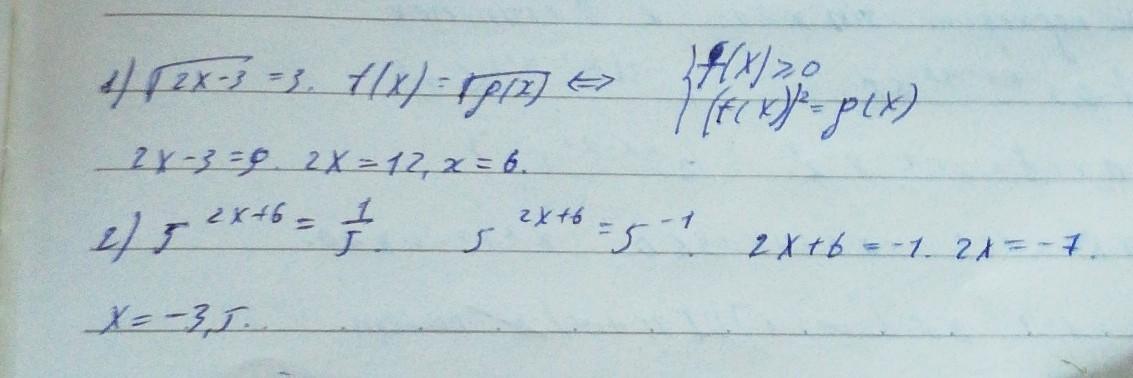 1) √2x-3 = 3. f(x) = √g(x) ⇔ { f(x) ≥ 0
(f(x))² = g(x)
2x-3 = 9. 2x = 12, x = 6.
2) 5^{2x+6} = 1/5. 5^{2x+6} = 5^{-1}. 2x+6 = -1. 2x = -7.
x = -3,5.